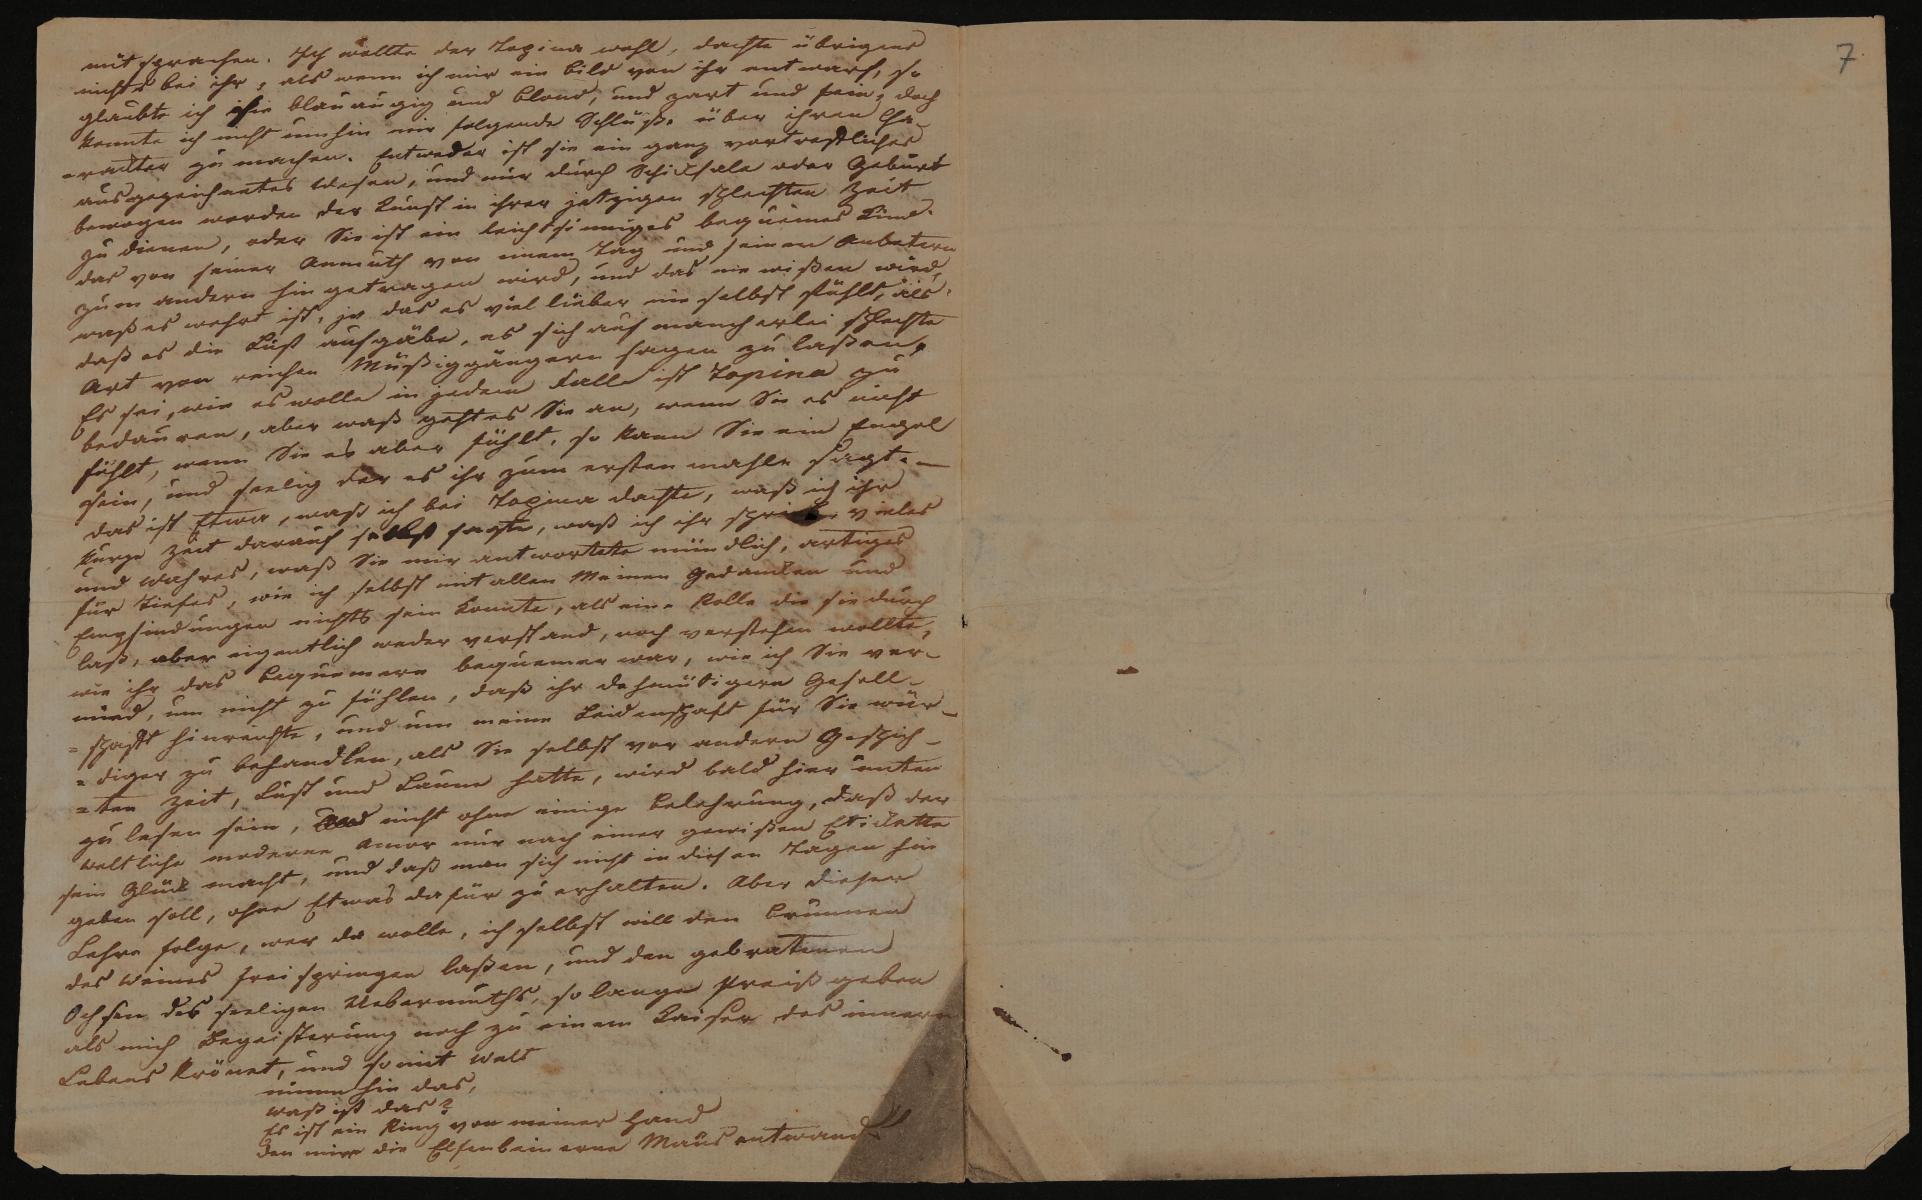 mitsprachen. Ich wollte der Topina wohl, dachte übrigens
nichts bei ihr, als wenn ich mir ein Bild von ihr entwarf, so
glaubte ich sie blauaugig und blond, und zart und fein; doch
konnte ich nicht umhin mir folgende Schlüße über ihren Cha-
-rackter zu machen. Entweder ist sie ein ganz vortreffliches
ausgezeichnetes Wesen, und nur durch Schicksale oder Geburt
bewogen worden der Kunst in ihrer jetzigen schlechten Zeit
zu dienen, oder Sie ist ein leichtsinniges bequemes Kind.
das von seiner Anmuth von einem Tag und seinen Anbetern
zum andern hin getragen wird, und das nie wißen wird,
waß es wehrt ist, ja das es viel lieber nie selbst fühlt, als
daß es die Lust aufgäbe, es sich auf mancherlei schlechte
Art von reichen Müßiggängern sagen zu laßen.
Es sei, wie es wolle in jedem Falle ist Topina zu
bedauren, aber waß geht es Sie an, wenn Sie es nicht
fühlt, wenn Sie es aber fühlt, so kann Sie ein Engel
sein, und seelig der es ihr zum ersten mahle sagt. —
das ist Etwa, waß ich bei Topina dachte, waß ich ihr
kurze Zeit darauf selbst sagte, waß ich ihr schrieb, vieles
und wahres, waß Sie mir antwortete mündlich, artiges
für tiefes, wie ich selbst mit allen Meinen Gedancken und
Empfindungen nichts sein konnte, als eine Rolle die sie durch
laß, aber eigentlich weder verstand, noch verstehen wollte,
wie ihr das bequemere bequemer war, wie ich Sie ver-
mied, um nicht zu fühlen, daß ihr dehmütigere Gesell-
=schafft hinreichte, und um meine Leidenschaft für Sie wür-
=diger zu behandlen, als Sie selbst vor andern Geschich-
=ten Zeit, Lust und Laune hatte, wird bald hier unten
zu lesen sein, nicht ohne einige Belehrung, daß der
weltliche moderne Amor nur nach einer gewißen Etickette
sein Glück macht, und daß man sich nicht in diesen Tagen hin
geben soll, ohne Etwas dafür zu erhalten. Aber dieser
Lehre folge, wer da wolle, ich selbst will den Brunnen
des Weines frei springen laßen, und den gebratenen
Ochsen des seeligen Uebermuths, so lange Preiß geben
als mich Begeisterung noch zu einem Kaiser des innern
Lebens krönet, und somit
nimm hin das,
waß ist das?
Es ist ein Ring von meiner Hand
den mir die Elfenbeinerne Maus entwand
7